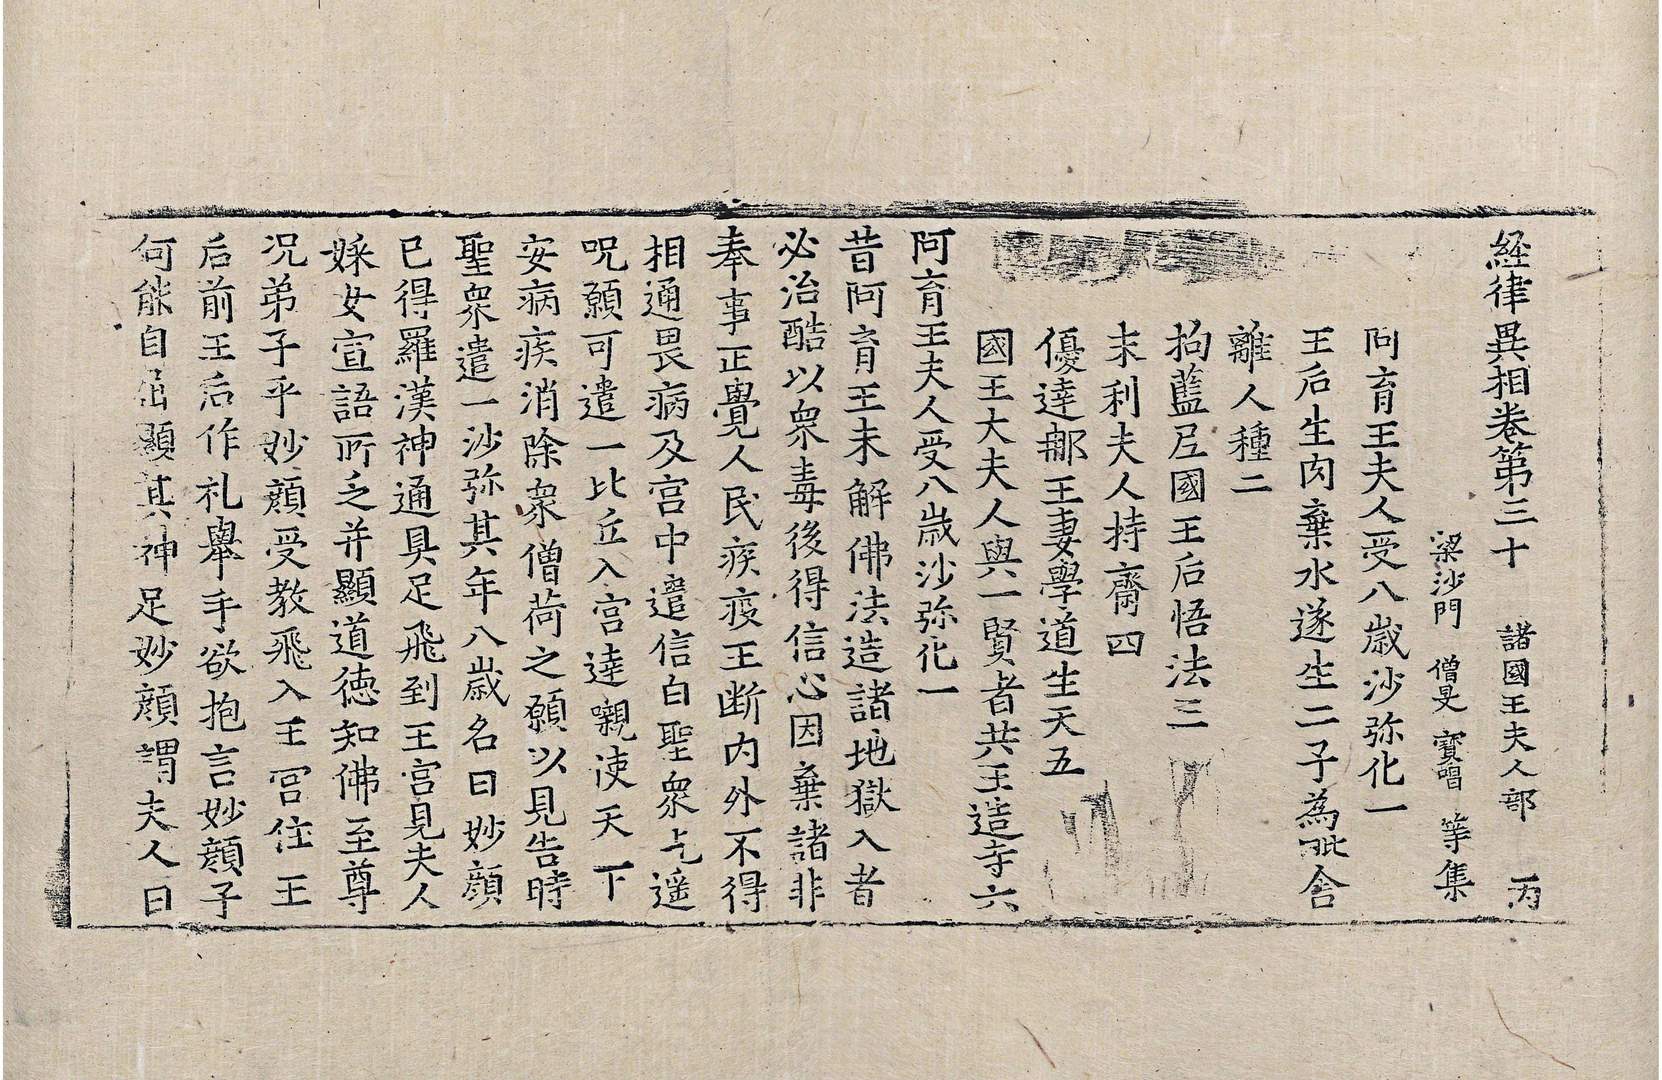 経律異相卷第三十　諸國王夫人部　丙
梁沙門　僧旻　寳唱　等集
阿育王夫人受八歳沙弥化一
王后生肉棄水遂生二子為毗舍
離人種二
拘藍尼國王后悟法三
末利夫人持齋四
優達那王妻學道生天五
國王大夫人與一賢者共王造寺六
阿育王夫人受八歳沙弥化一
昔阿育王未解佛法造諸地獄入者
必治酷以衆毒後得信心因棄諸非
奉事正覺人民疾疫王断内外不得
相通畏病及宫中遣信白聖衆乞遥
呪願可遣一比丘入宫達嚫使天下
安病疾消除衆僧荷之願以見告時
聖衆遣一沙弥其年八歳名曰妙顔
已得羅漢神通具足飛到王宫見夫人
婇女宣語所乏并顯道徳知佛至尊
况弟子乎妙顔受教飛入王宫住王
后前王后作礼舉手欲抱言妙顔子
何能自屈顯其神足妙顔謂夫人曰